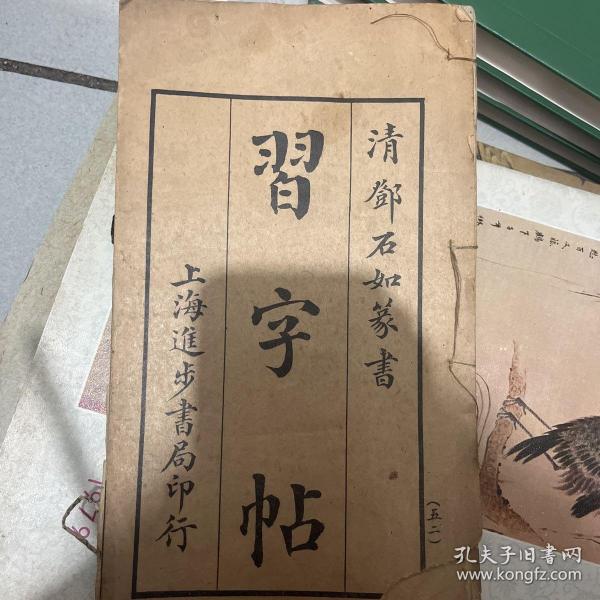 清鄧石如篆書
習字帖
上海進步書局印行
（五二）
1979
孔夫子旧书网
www.kongfz.com